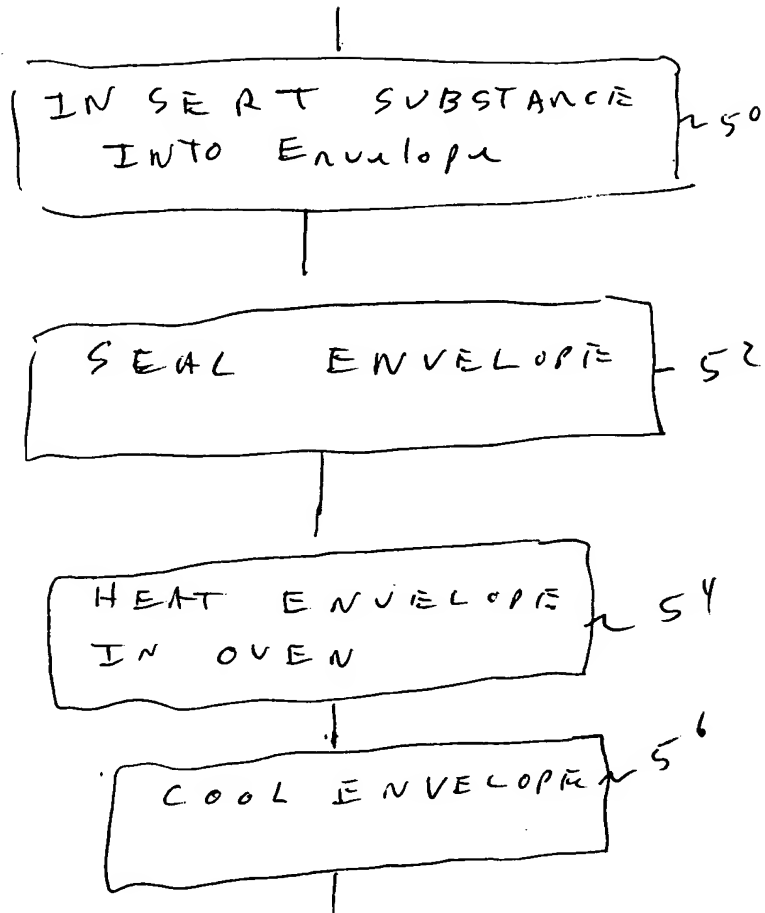 INSERT SUBSTANCE 50
INTO Envelope
SEAL ENVELOPE 52
HEAT ENVELOPE 54
IN OVEN
COOL ENVELOPE 56